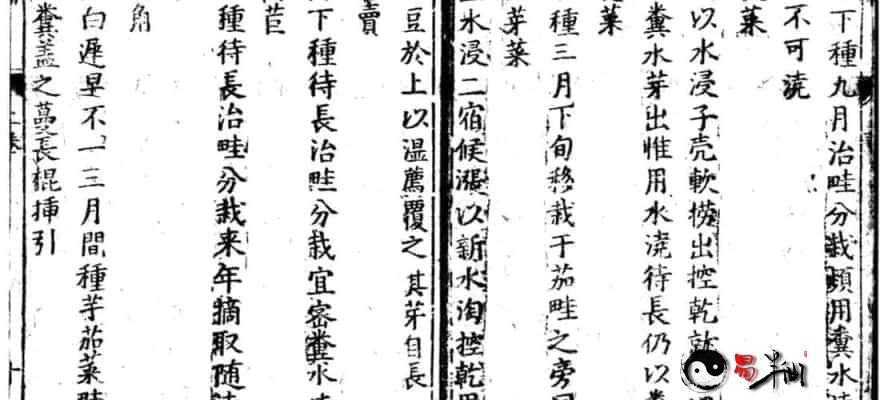 下種九月治畦分栽頻用糞水
不可澆
菜
以水浸子壳軟撈出控乾就
糞水芽出惟用水澆待長仍以糞
菜
種三月下旬移栽于茄畦之旁
芽菜
水浸二宿候漲以新水淘控乾用
豆於上以湿薦覆之其芽自長
賣
下種待長治畦分栽宜密糞水
苣
種待長治畦分栽来年摘取随
角
白遲早不一三月間種芋茄菜畦
糞盖之蔓長棍揷引
二卷
十
易半仙